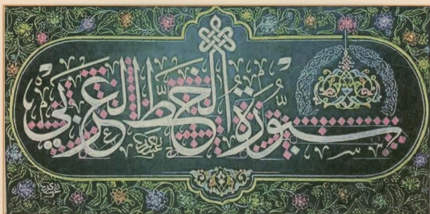 سَبُّورَةُ الخَطِّ العَرَبِيّ